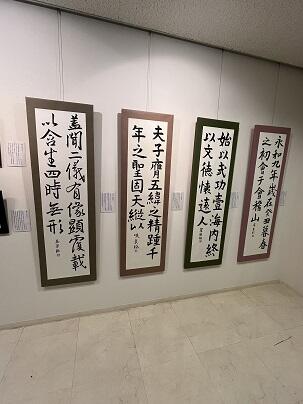 永和九年歳在癸丑暮春
之初會于會稽山
始以武功壹海内終
以文德懐遠人
夫子膺五緯之精踵千
年之聖固天縱以
蓋聞二儀有像顕覆載
以含生四時無形